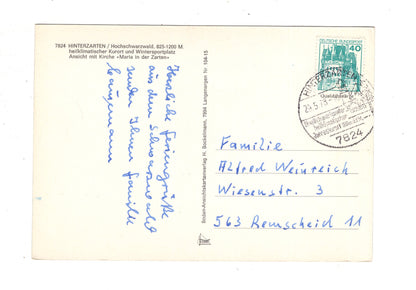 7824 HINTERZARTEN / Hochschwarzwald, 825-1200 M.
heilklimatischer Kurort und Wintersportplatz
Ansicht mit Kirche «Maria in der Zarten»
Herzliche Feriengrüße
aus dem Schwarzwald
senden Ihnen Familie
Boden-Ansichtskartenverlag H. Bockelmann, 7994 Langenargen Nr.
DEUTSCHE BUNDESPOST
40
HINTERZARTEN
7824
Familie
Alfred Weinreich
Wiesenstr. 3
563 Remscheid 11